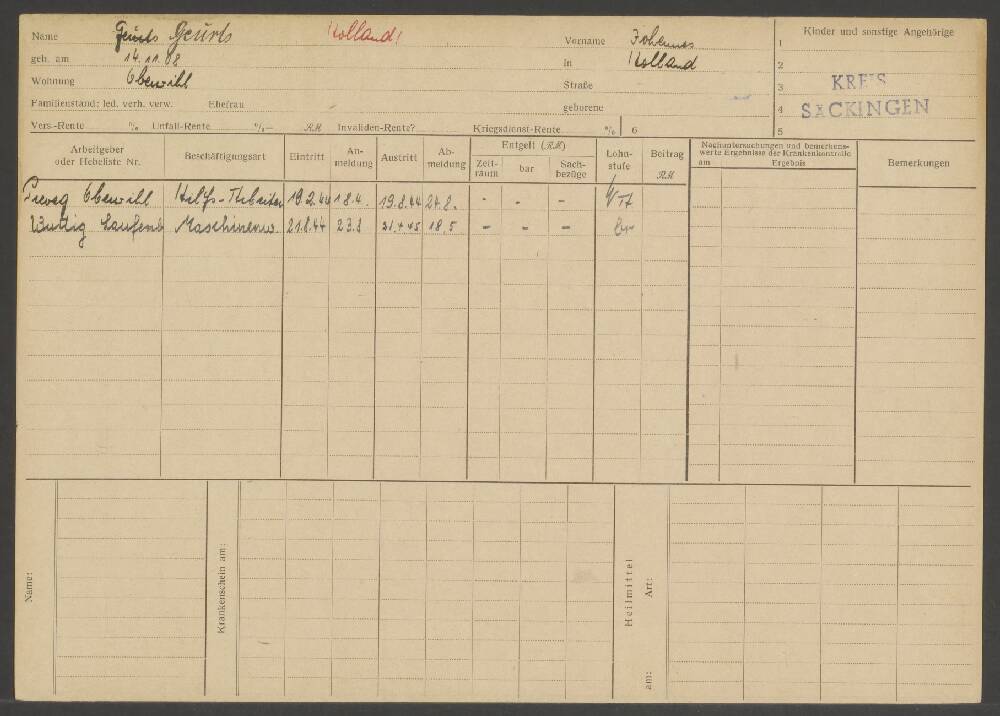 Name Geurts Holland! Vorname Johannes Kinder und sonstige Angehörige
geb. am 14.11.08 in Holland 1
Wohnung Oberwihl Straße 2
Familienstand: led. verh. verw. Ehefrau geborene 3 KREIS
4 SÄCKINGEN
Vers.-Rente % Unfall-Rente %— RM Invaliden-Rente? Kriegsdienst-Rente % 6 5
Arbeitgeber oder Hebeliste Nr. Beschäftigungsart Eintritt An-meldung Austritt Ab-meldung Entgelt (RM) Zeit-raum bar Sach-bezüge Lohn-stufe Beitrag RM Nachuntersuchungen und bemerkens-werte Ergebnisse der Krankenkontrolle am Ergebnis Bemerkungen
Oberwihl Hilfs-Arbeiter 19.2.44 18.4. 19.8.44 24.8. - - -
Laufenb Maschinenw. 21.8.44 23.8 45 18.5 - - -
Name:
Krankenschein am:
Heilmittel
Art:
am: